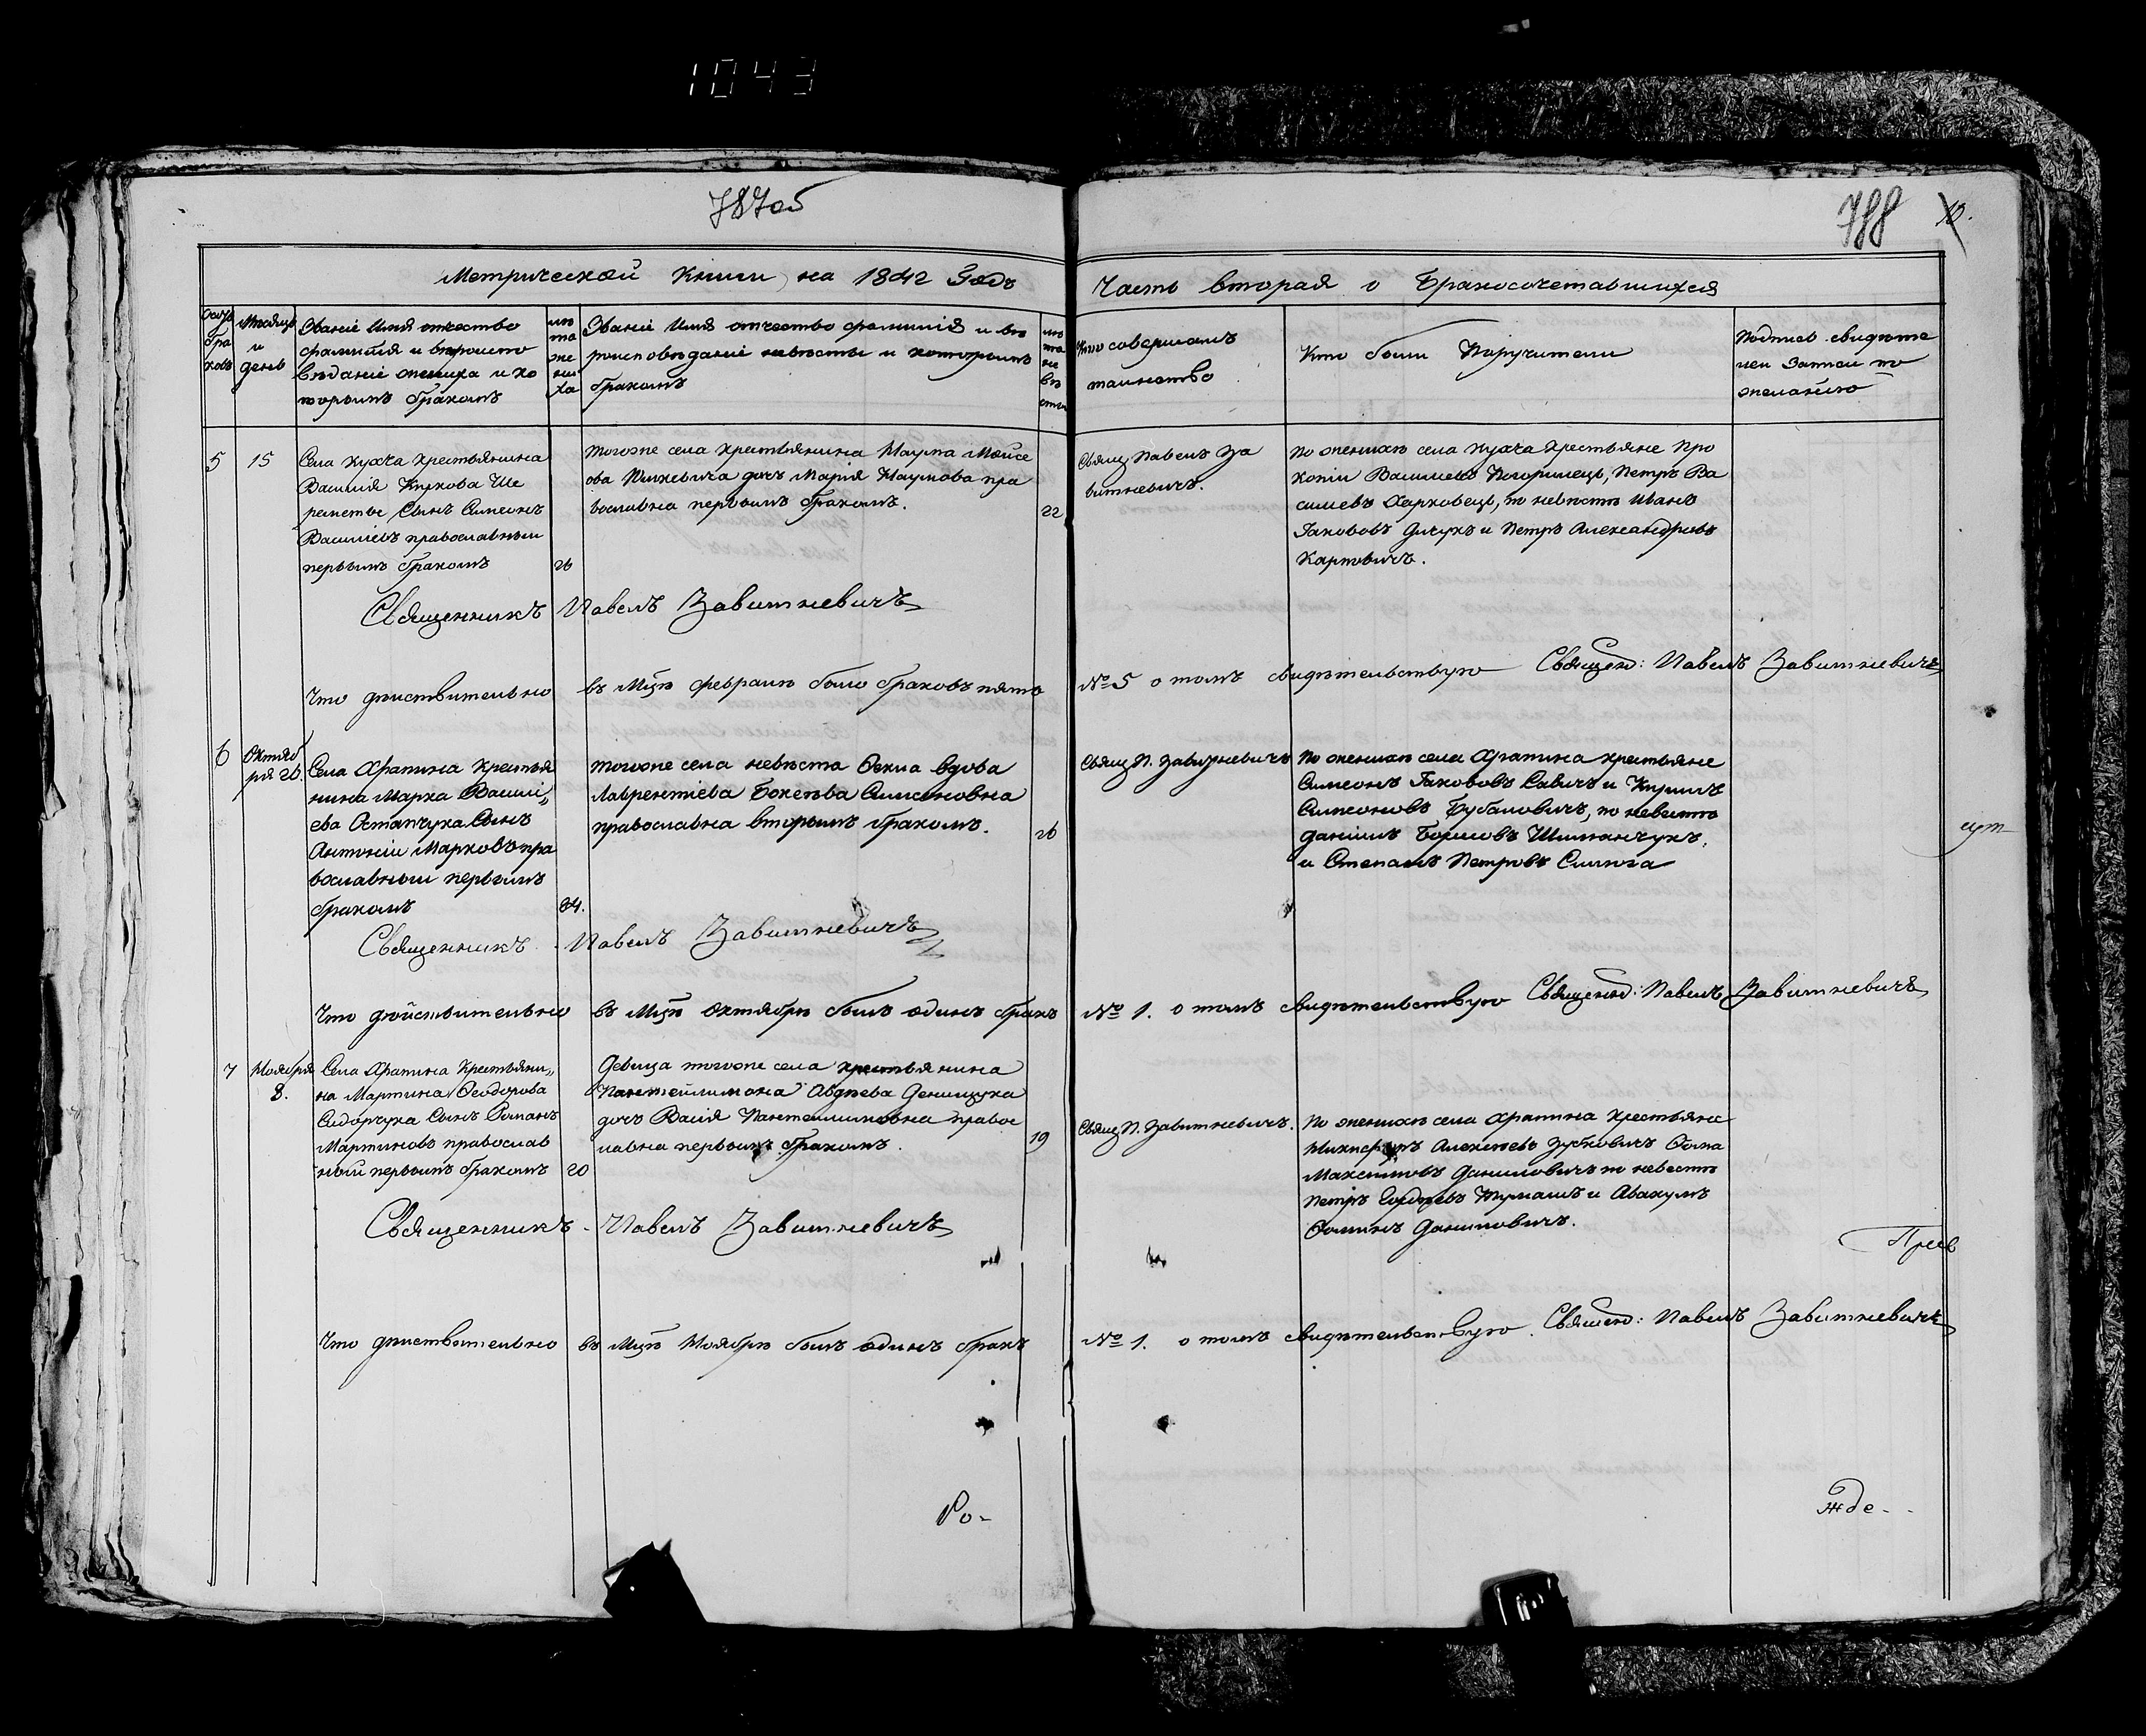 1043
787 об
788
10.
Метрической Книги на 1842 Годъ
Часть вторая о Бракосочетавшихся
Счетъ браковъ
Мѣсяцъ и день
Званіе Имя отчество
фамилія и вѣроиспо
вѣданіе жениха и ко
торымъ бракомъ
лѣта жениха
Званіе Имя отчество фамилія и вѣ
роисповѣданіе невѣсты и которымъ
бракомъ
лѣта невѣсты
Кто совершалъ
таинство
Кто были Поручители
Подпись свидѣте
лей Записи по
желанію
5
15
Села Кухча крестьянина
Василія
сынъ Симеонъ
Василіевъ православный
первымъ бракомъ
26
Тогоже села крестьянина Наума Мойсе
ова дочь Марія Наумова пра
вославна первымъ бракомъ.
22
Свящ. Павелъ За
витневичъ.
По женихѣ села Кухча крестьяне Про
копій Василіевъ Петръ Ва
силіевъ Харковецъ, по невѣстѣ Иванъ
Іаковов и Петръ Александровъ
Карповичъ.
Священникъ Павелъ Завитневичъ
Что дѣйствительно въ Мцѣ февралѣ было браковъ пять
№ 5 о томъ свидѣтельствую Священ: Павелъ Завитневичъ
6
Октяб
ря 26.
Села Храпина крестья
нина Марка Василі„
ева Остапчука сынъ
Антоній Марковъ пра
вославный первымъ
бракомъ
24.
Тогоже села невѣста Фекла вдова
Лаврентіева Симеоновна
православна вторымъ бракомъ.
26
Свящ. П. Завитневичъ
По женихѣ села Храпина крестьяне
Симеонъ Іакововъ Савичъ и Кириллъ
Симеоновъ по невестѣ
Даніилъ Борисовъ Шиманчукъ,
и Степанъ Петровъ
Священникъ Павелъ Завитневичъ
Что дѣйствительно въ Мцѣ Октябрѣ былъ одинъ бракъ
№ 1. о томъ свидѣтельствую Священ: Павелъ Завитневичъ
7
Ноября
8.
Села Храпина Крестьяни„
на Мартина Ѳеодорова
Сидорчука сынъ Романъ
Мартиновъ православ
ный первымъ бракомъ
20
Девица тогоже села крестьянина
Пантейлимона Авдѣева Денищука
дочь Пантелимоновна право
славна первымъ бракомъ.
19
Свящ. П. Завитневичъ.
По женихѣ села Храпина крестьяне
Никифоръ Алексѣевъ Зубковичъ Ѳома
Максимовъ Даниловичъ по невестѣ
Петръ и Авакумъ
Ѳоминъ Даниловичъ.
Священникъ Павелъ Завитневичъ
Что дѣйствительно въ Мцѣ Ноябрѣ былъ одинъ бракъ
№ 1. о томъ свидѣтельствую Священ: Павелъ Завитневичъ
Ро-
жде-